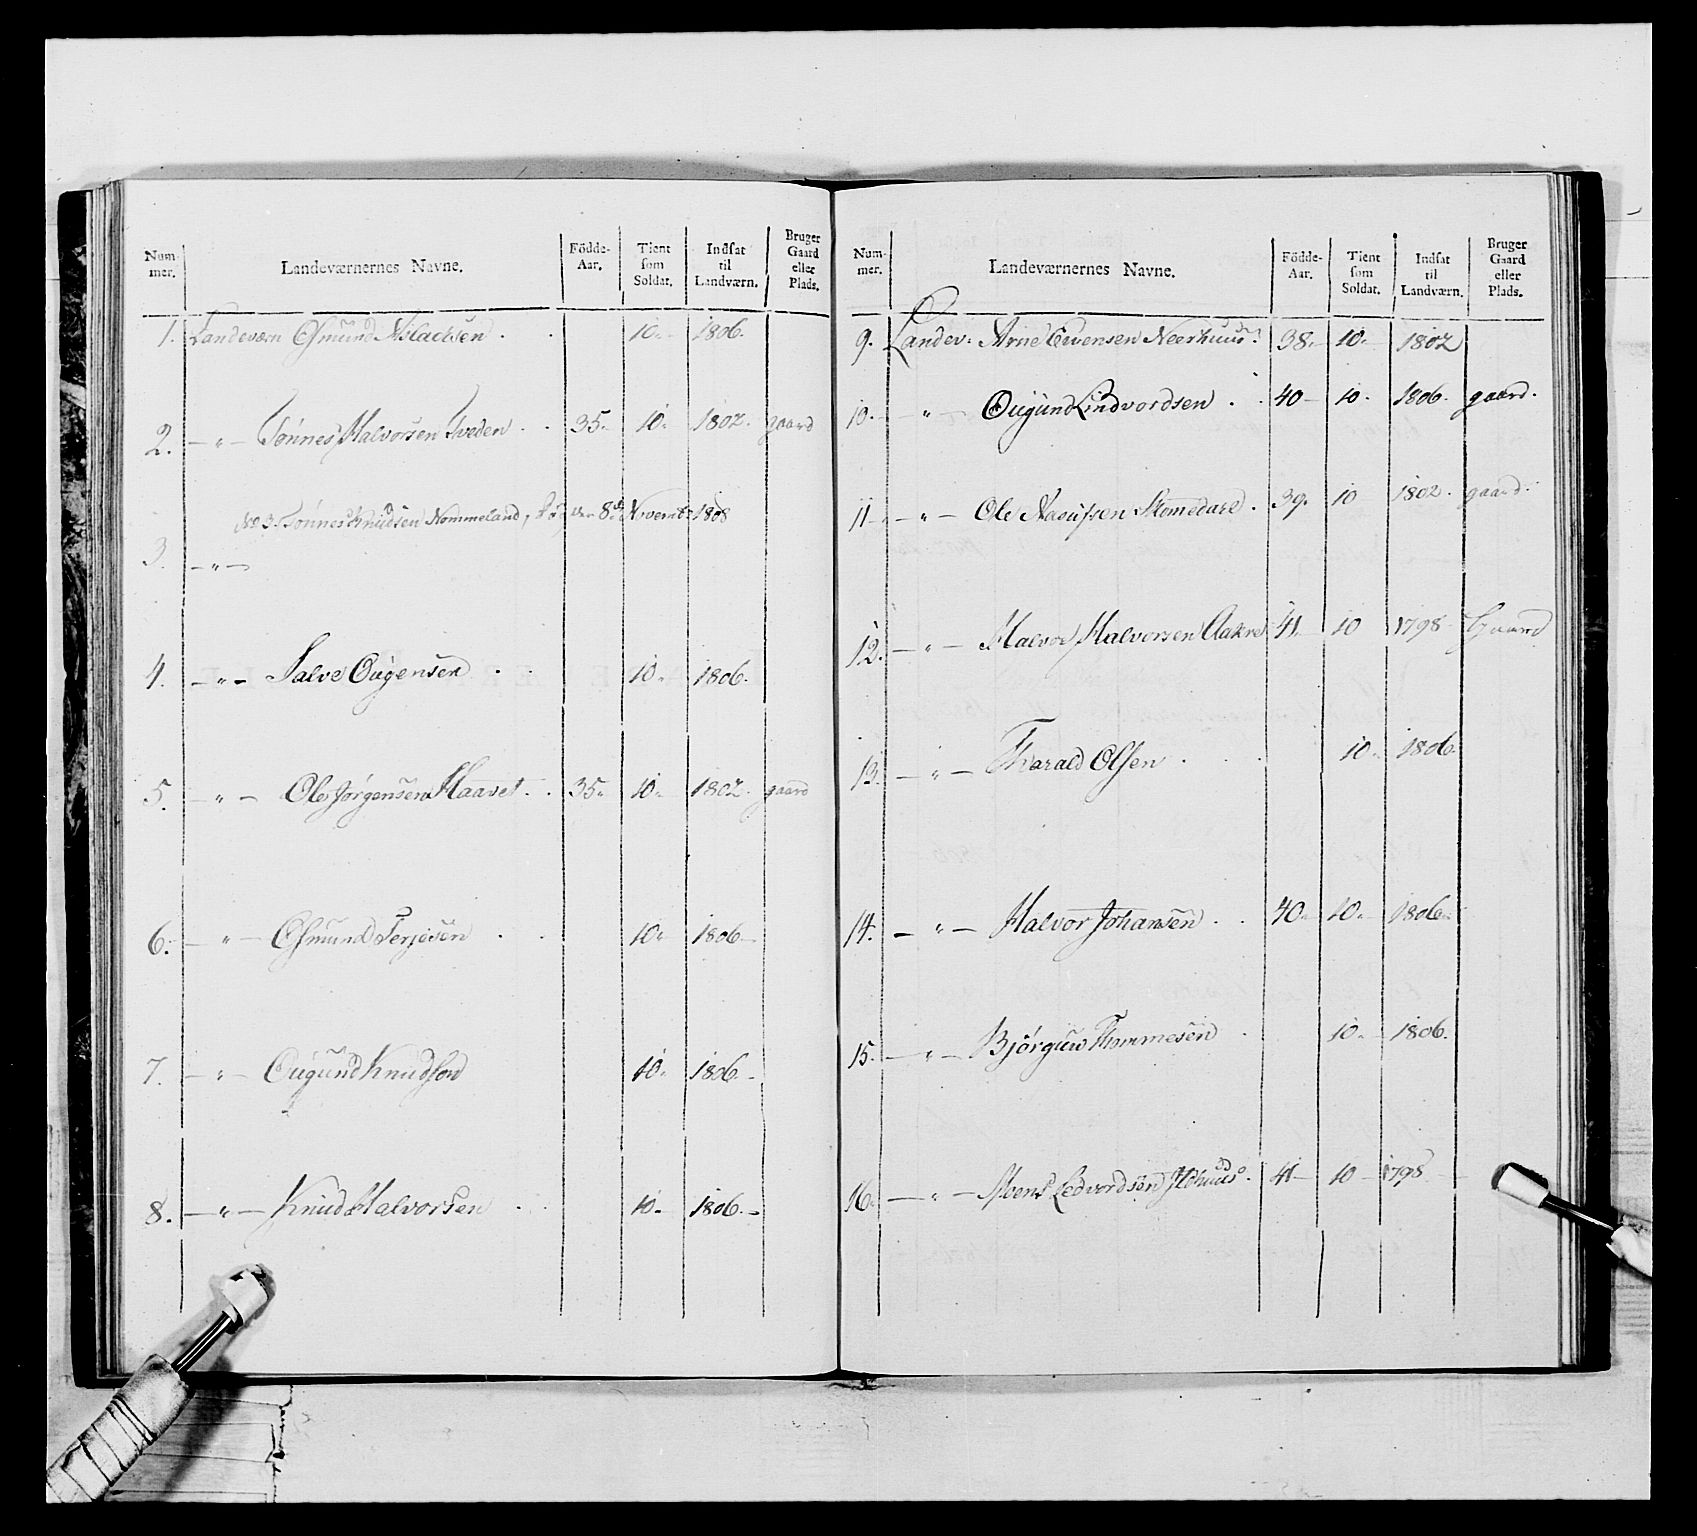 Num-mer. Landeværnernes Navne. Födde-Aar. Tient som Soldat. Indsat til Landværn. Bruger Gaard eller Plads.
1. Landeværn Osmund Aslachsen . . 10. 1806.
2. — " — Tønnes Halvorsen Tveden . . 35. 10. 1802. gaard
No 3. Tønnes Knudsen Nommeland, den 8de Novembr 1808
3. — " —
4. — " — Salve Ougensen . . 10. 1806.
5. — " — Ole Jørgensen Haavet . . 35. 10. 1802. gaard
6. — " — Osmund Terjesen . . 10. 1806.
7. — " — Ougund Knudsen 10. 1806.
8. — " — Knud Halvorsen . . 10. 1806.
Num-mer. Landeværnernes Navne. Födde-Aar. Tient som Soldat. Indsat til Landværn. Bruger Gaard eller Plads.
9. Landev: Arne Evensen 38. 10. 1802
10. — " — Ougund Lindvordsen . . 40 10. 1806. gaard.
11 — " — Ole 39. 10 1802. gaard.
12. — " — Halvor Halvorsen Aakre 41. 10 1798 Gaard
13. — " — Tharald Olsen . . . 10. 1806.
14. — " — Halvor Johansen . . 40. 10. 1806.
15. — " — Thommesen . 10. 1806.
16. — " — Ledvordsen 41 10 1798